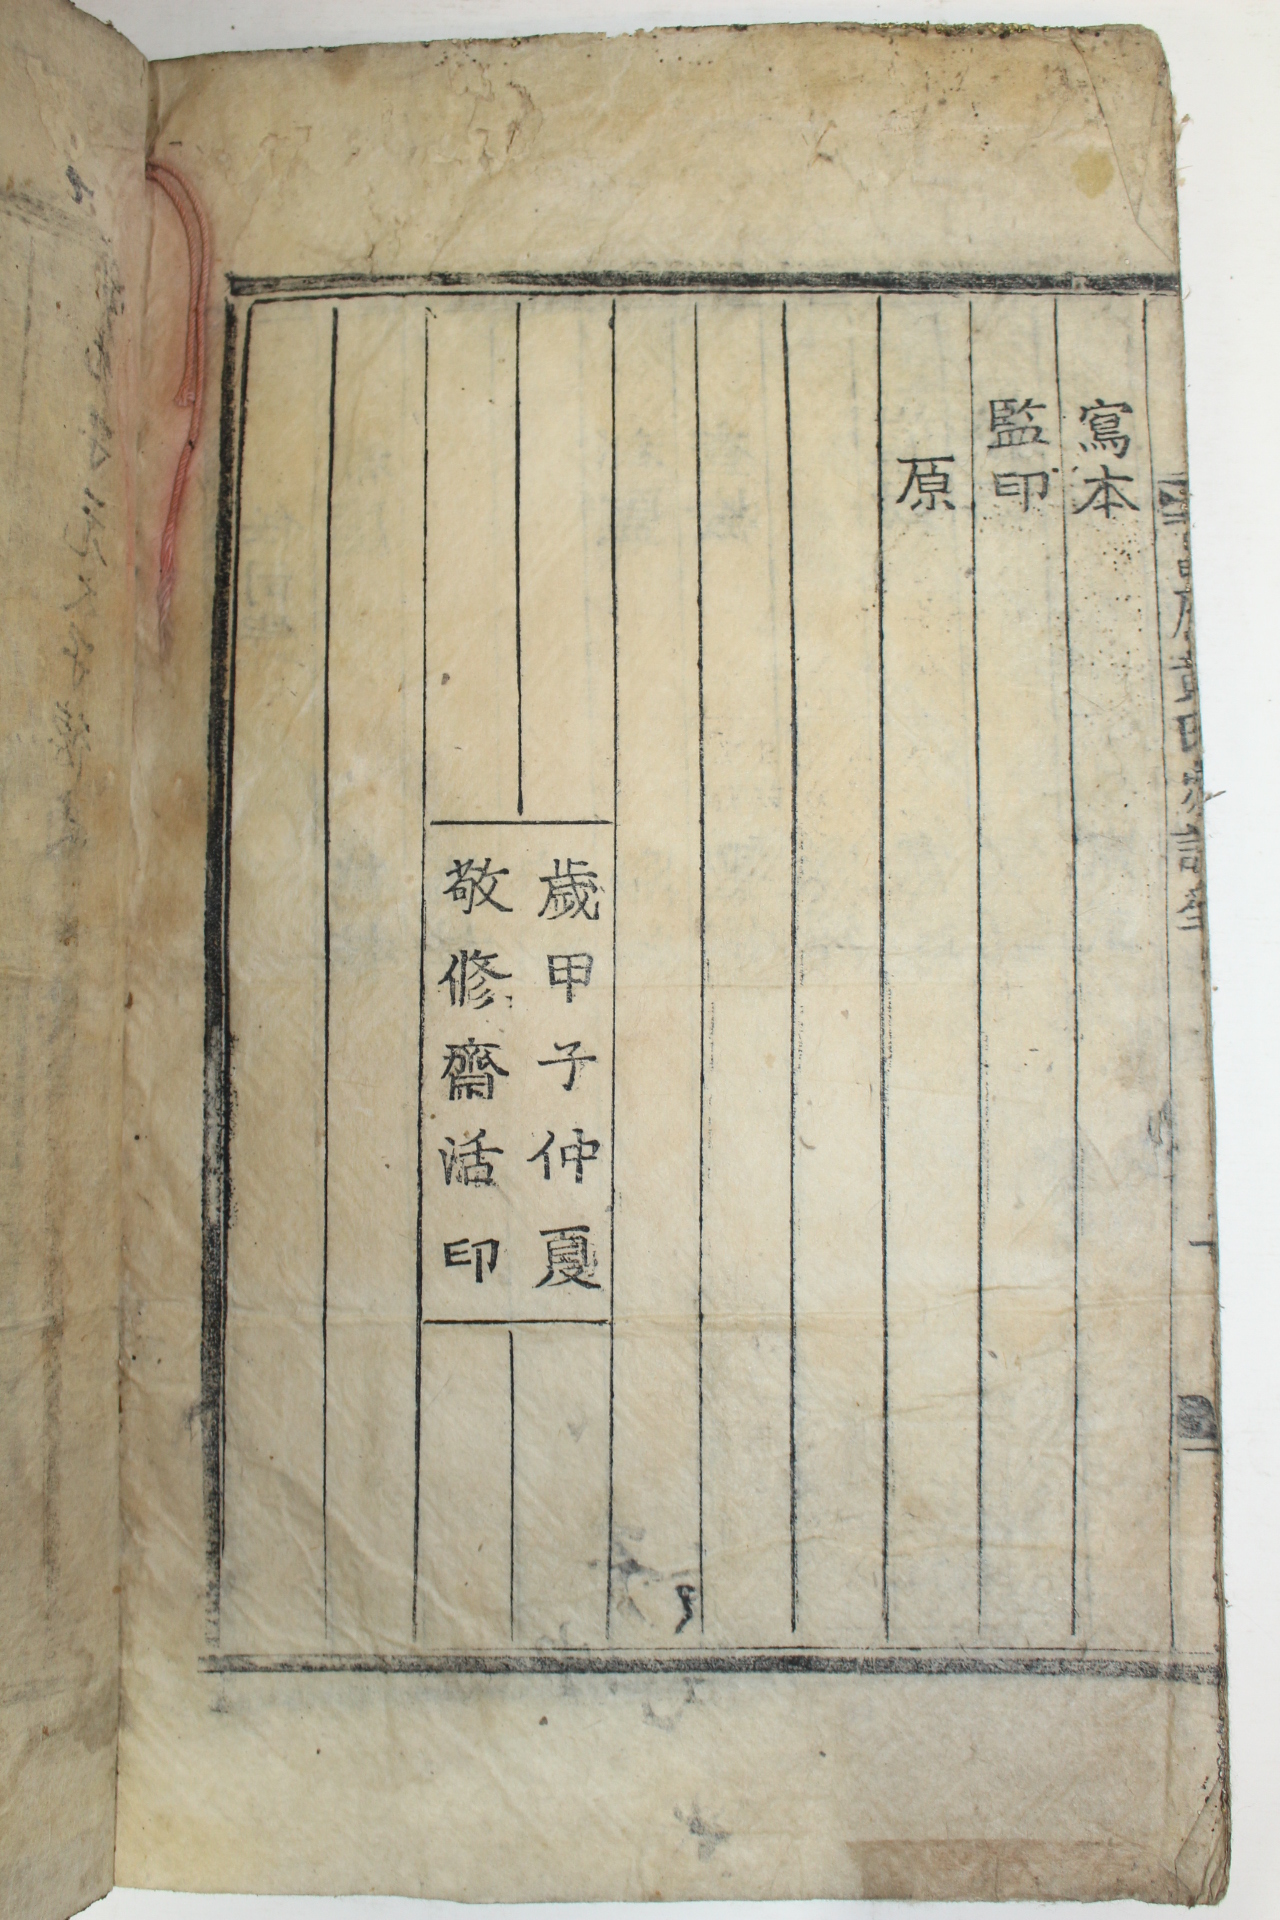 寫本
監印
原
歲甲子仲夏
敬修齋活印